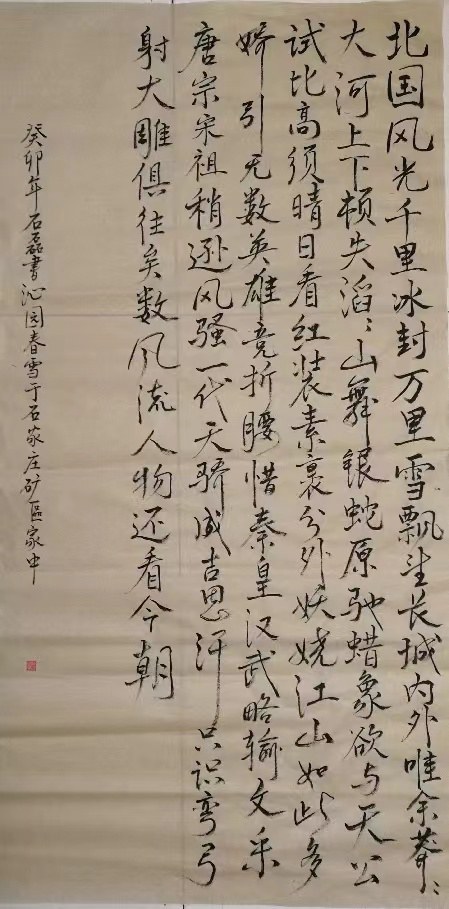 北国风光千里冰封万里雪飘望长城内外唯余莽〻
大河上下顿失滔〻山舞银蛇原驰蜡象欲与天公
试比高须晴日看红装素裹分外妖娆江山如此多
娇引无数英雄竞折腰惜秦皇汉武略输文采
唐宗宋祖稍逊风骚一代天骄成吉思汗只识弯弓
射大雕俱往矣数风流人物还看今朝
癸卯年石磊書沁园春雪于石家庄矿区家中